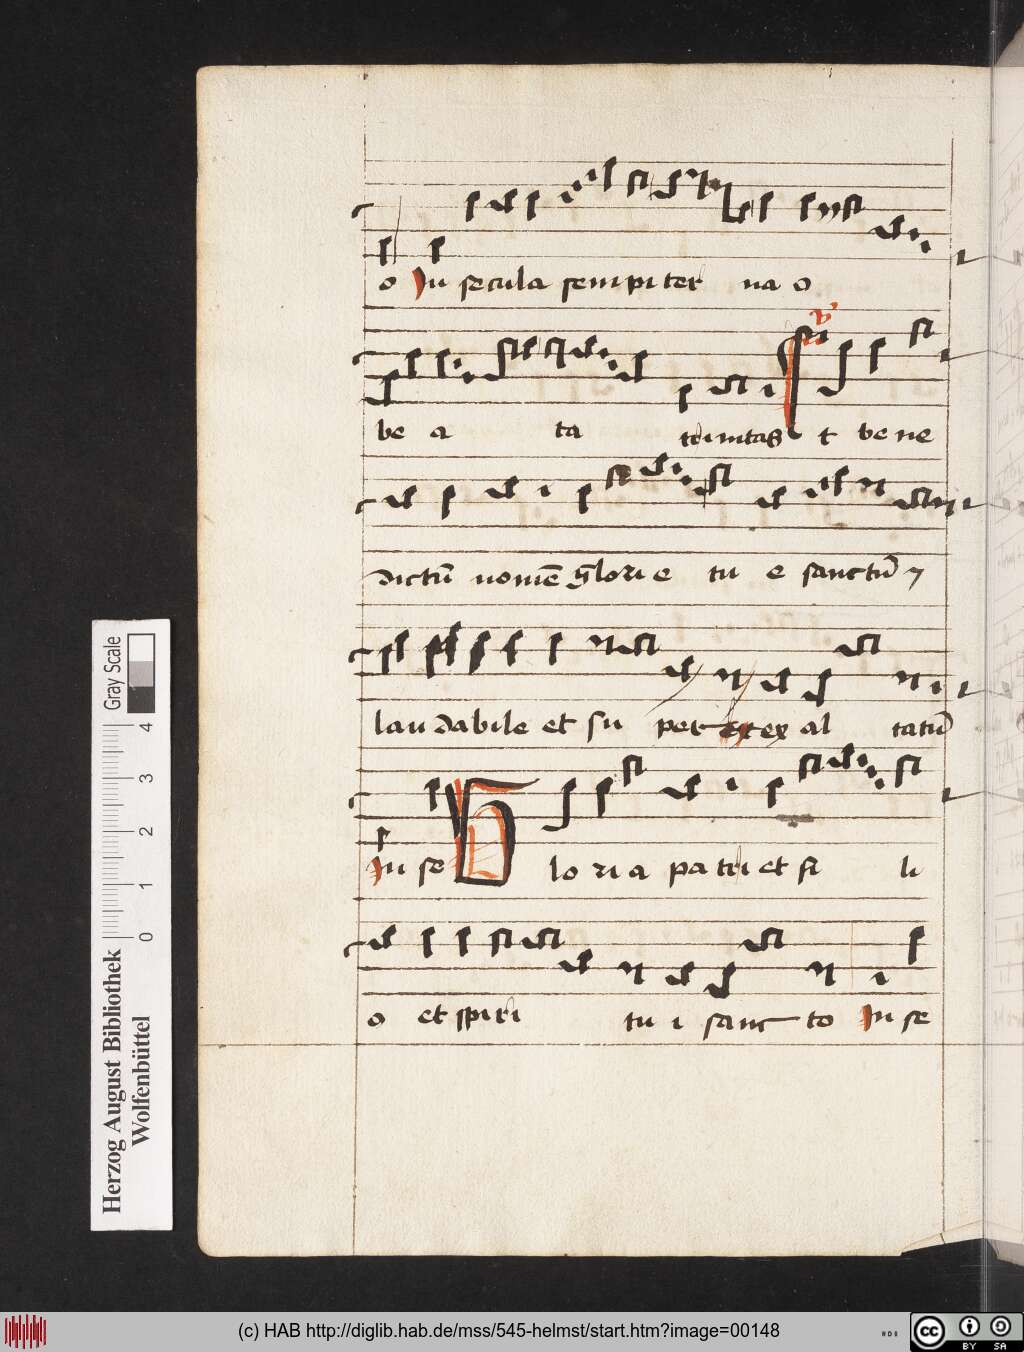 o In secula sempiter na o
be a ta trinitas Et bene
dictū nomē glorie tu e sanctū ⁊
laudabile et su per ex al tatū
In se Gloria patri et fi li
o et spiri tu i sanc to In se
Gray Scale
0 1 2 3 4
Herzog August Bibliothek
Wolfenbüttel
(c) HAB http://diglib.hab.de/mss/545-helmst/start.htm?image=00148
cc BY SA